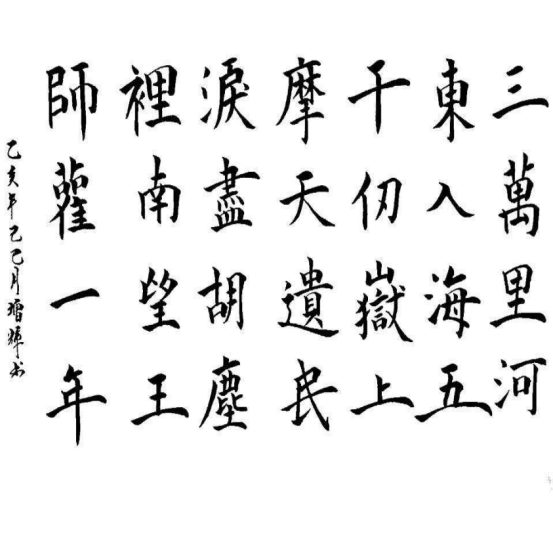 三萬里河
東入海五
千仞嶽上
摩天遺民
淚盡胡塵
裡南望王
師一年
乙亥年乙巳月輝书